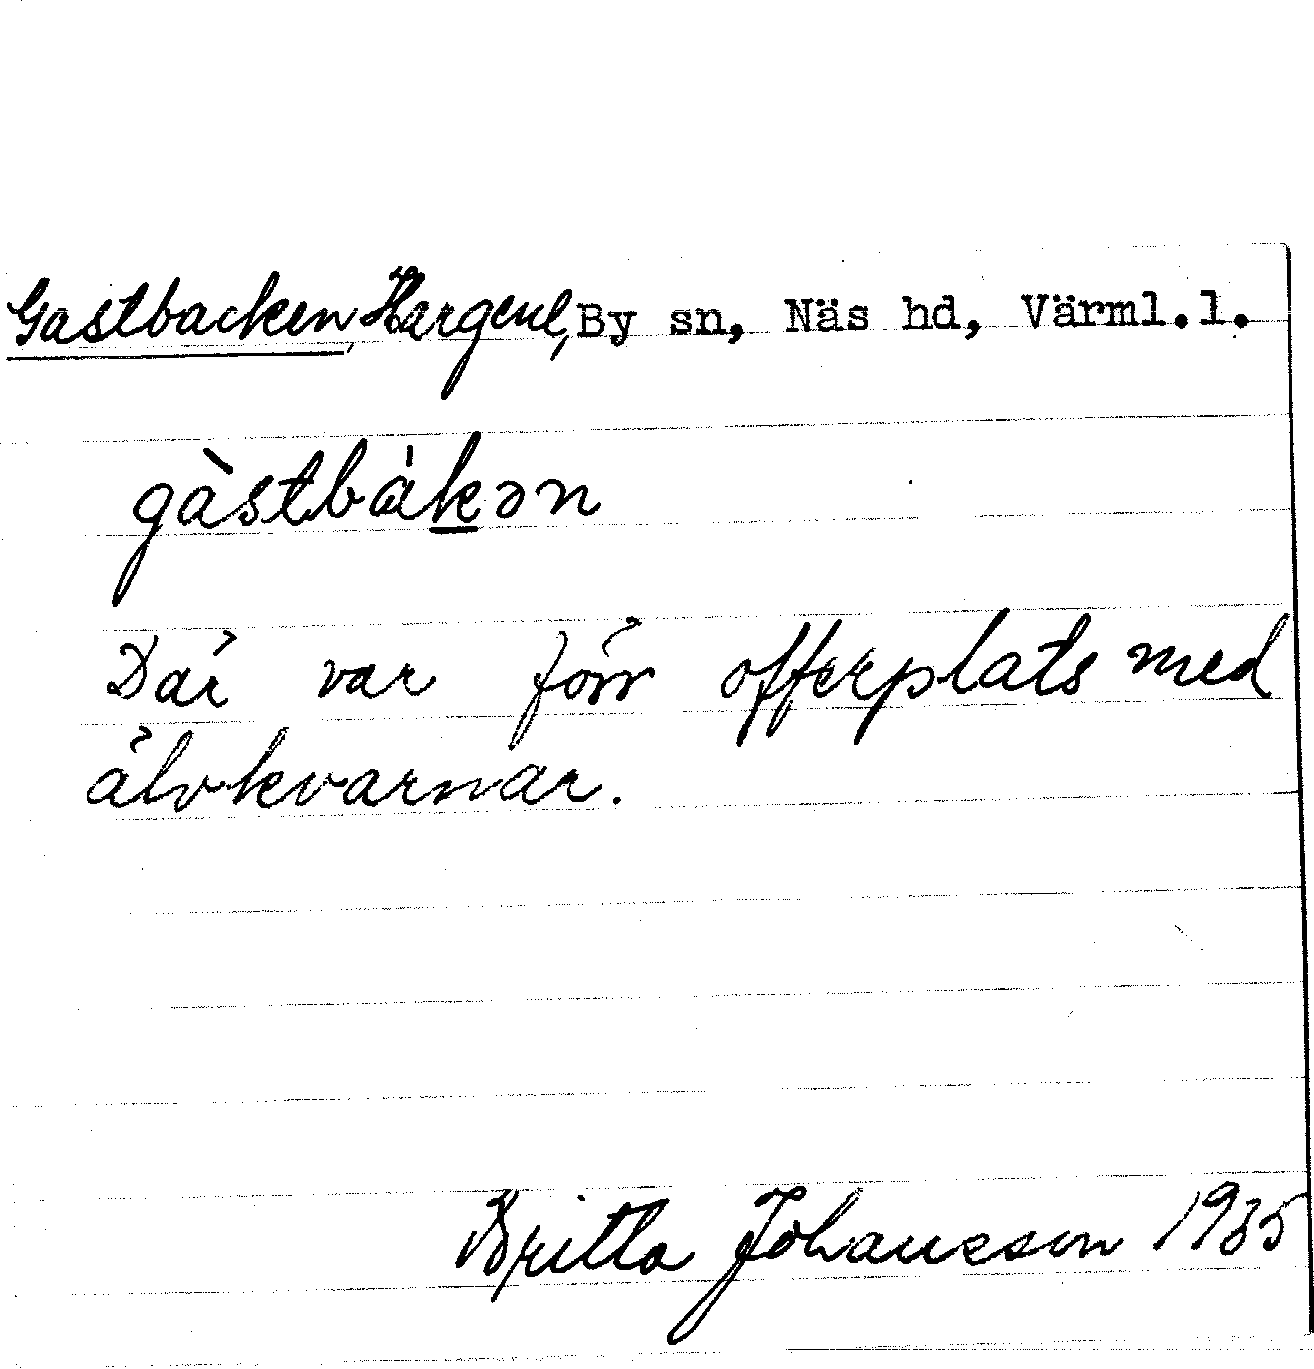 Gastbacken, Hargene, By sn, Näs hd, Värml.l.
gàstbàkən
Där var förr offerplats med
älvkvarnar.
Britta Johansson 1935